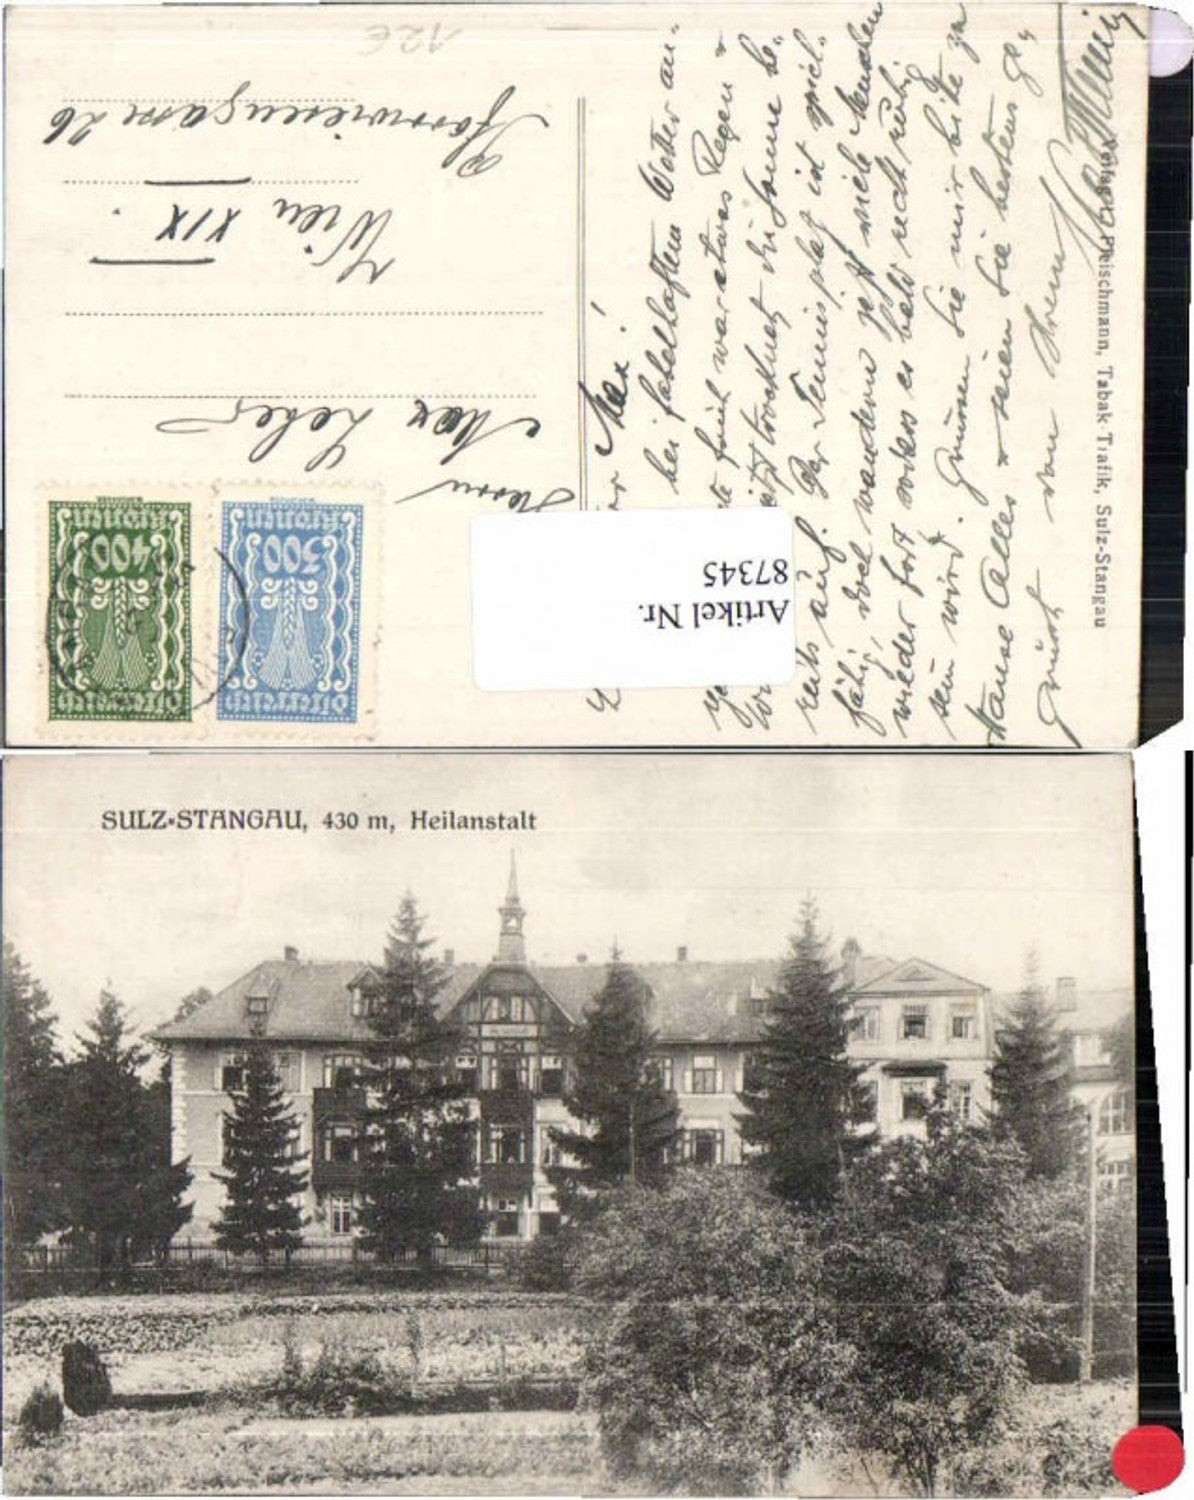 12€
Herrn
Max
Wien XIX.
26
Österreich
300
Kronen
Österreich
400
Kronen
Artikel Nr.
87345
Max!
bei fabelhaftem Wetter an-
früh war etwas Regen &
trocknet die Sonne be-
reits auf. Der Tennisplatz ist spiel-
fähig, doch wandern jetzt viele Menschen
wieder fort sodass es bald recht ruhig
sein wird. Grüssen Sie mir bitte zu
Hause Alles & seien Sie bestens ge-
grüsst von Ihrem
Verlag L. Fleischmann, Tabak-Trafik, Sulz-Stangau
SULZ-STANGAU, 430 m, Heilanstalt